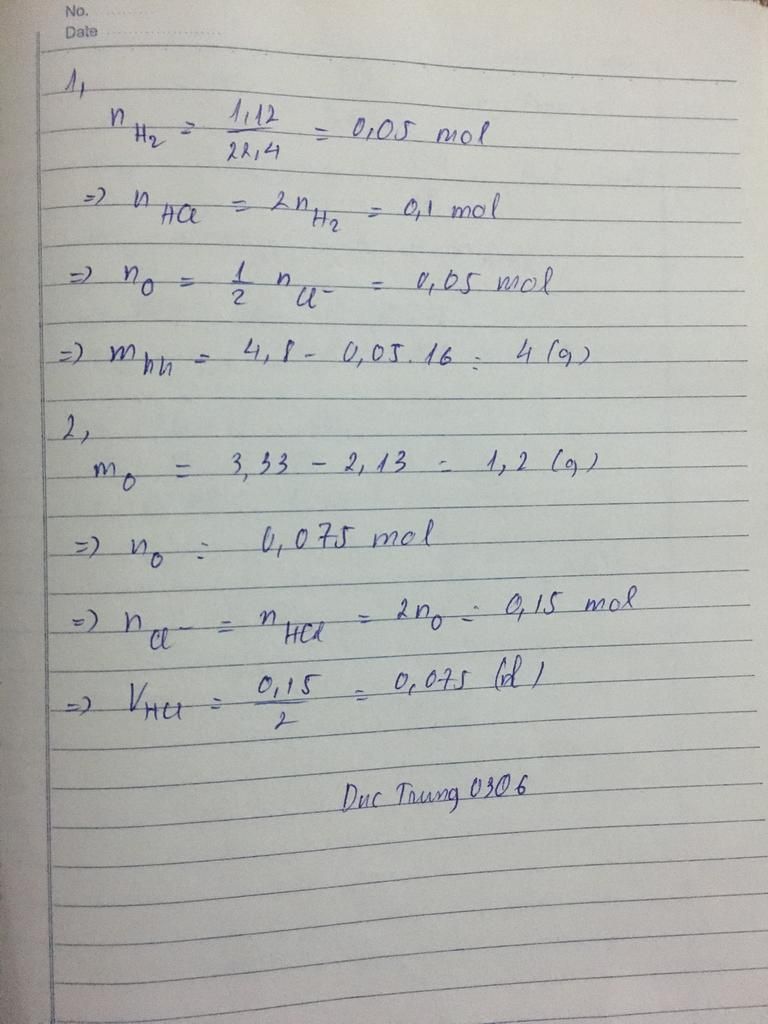 No.
Date
1,
n H₂ = 1,12 / 22,4 = 0,05 mol
=> n HCl = 2n H₂ = 0,1 mol
=> n O = 1/2 n Cl⁻ = 0,05 mol
=> m hh = 4,8 - 0,05.16 = 4 (g)
2,
m O = 3,33 - 2,13 = 1,2 (g)
=> n O = 0,075 mol
=> n Cl⁻ = n HCl = 2n O = 0,15 mol
=> V HCl = 0,15 / 2 = 0,075 (l)
Duc Trung 0306